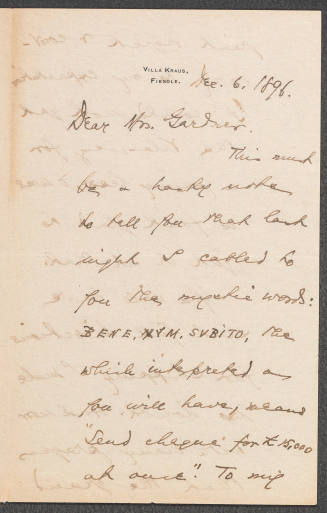 VILLA KRAUS,
FIESOLE.
Dec. 6, 1896.
Dear Mrs. Gardner.
This must
be a hasty note
to tell you that last
night I cabled to
you the mystic words:
BENE, NYM. SVBITO, the
which interpreted as
you will have, means
"Send cheque for £15,000
at once". To my